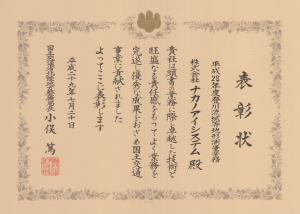 表彰状
平成28年度
株式会社ナカノアイシステム殿
貴社は頭書の業務に際し卓越した技術と
旺盛なる責任感をもってよく業務を
完遂し優秀な成果をおさめ国土交通
事業に貢献されました
よってここに表彰します
平成二十九年七月二十日
小俣 篤